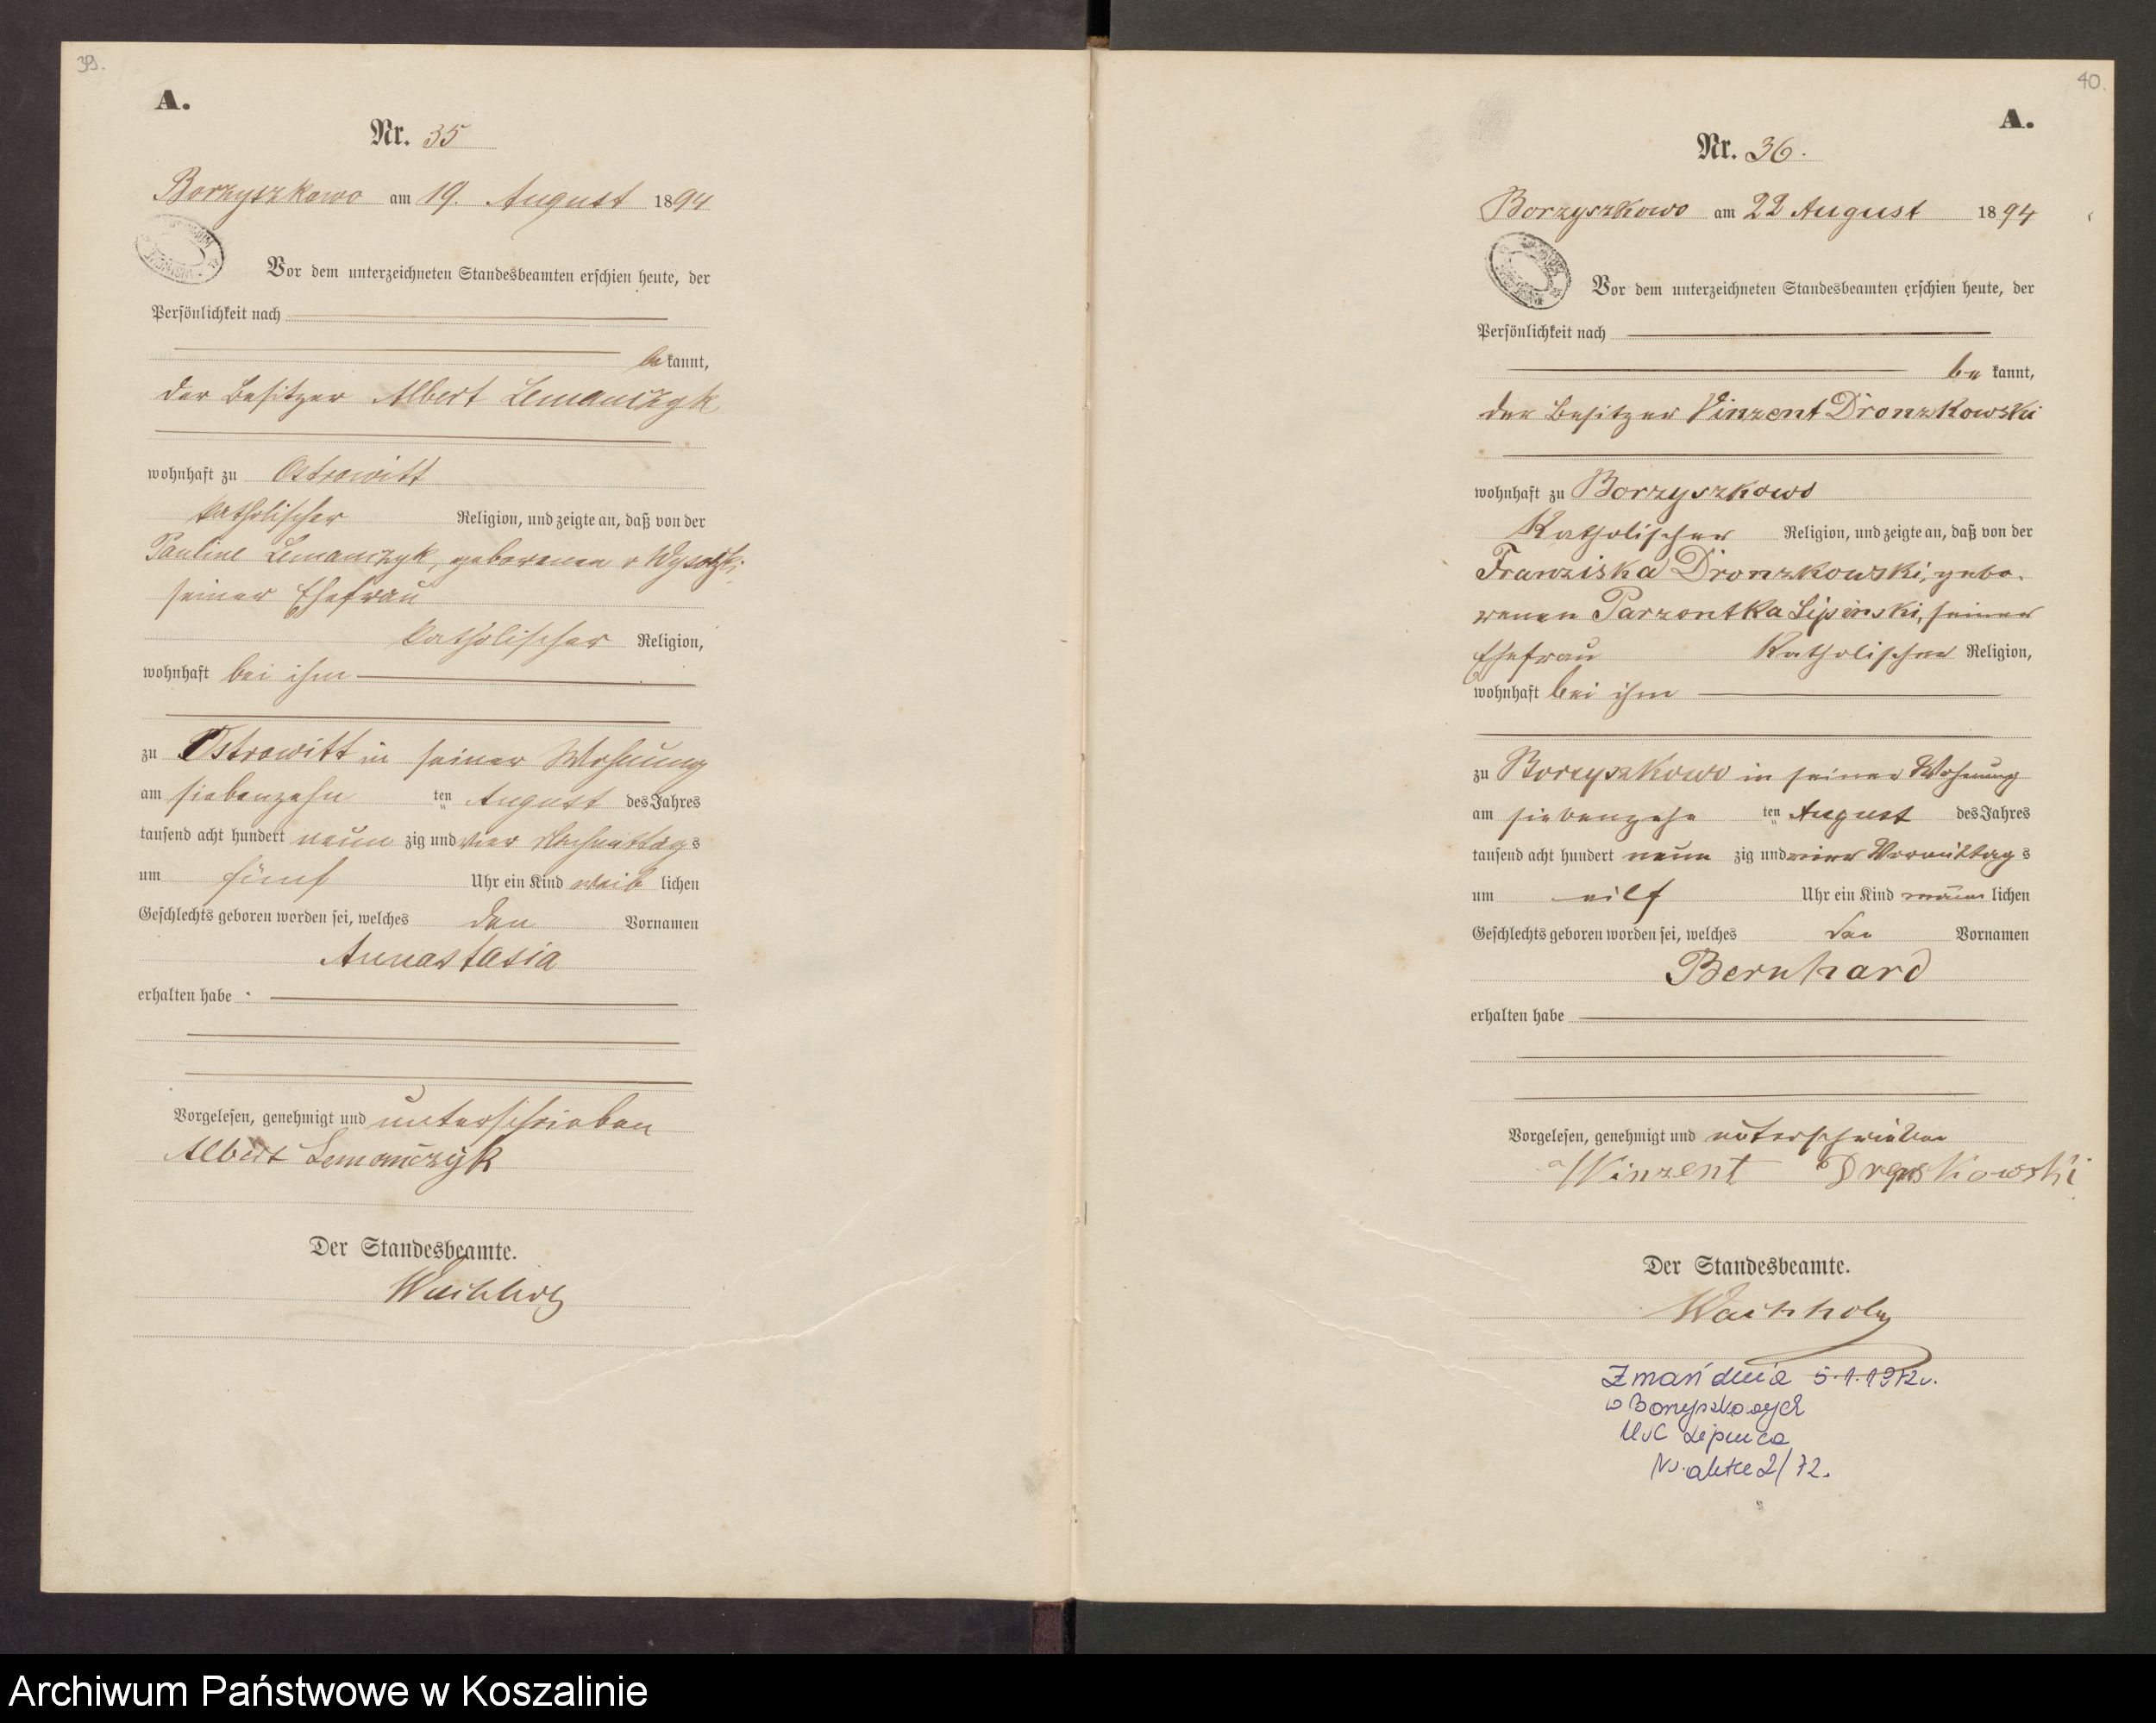 39.
A.
Nr. 35
Borzyszkowo am 19. August 1894
Vor dem unterzeichneten Standesbeamten erschien heute, der
Persönlichkeit nach
be kannt,
der Besitzer Albert Lemanczyk
wohnhaft zu Ostrowitt
katholischer Religion, und zeigte an, daß von der
Pauline Lemanczyk, geborenen v Wysotzki,
seiner Ehefrau
katholischer Religion,
wohnhaft bei ihm
zu Ostrowitt in seiner Wohnung
am siebenzehn ten August des Jahres
tausend acht hundert neun zig und vier Nachmittag s
um fünf Uhr ein Kind weib lichen
Geschlechts geboren worden sei, welches den Vornamen
Annastasia
erhalten habe
Vorgelesen, genehmigt und unterschrieben
Albert Lemańczyk
Der Standesbeamte.
Wachholz
40.
A.
Nr. 36.
Borzyszkowo am 22 August 1894
Vor dem unterzeichneten Standesbeamten erschien heute, der
Persönlichkeit nach
be kannt,
der Besitzer Vinzent Dronzkowski
wohnhaft zu Borzyszkowo
Katholischer Religion, und zeigte an, daß von der
Franziska Dronzkowski, gebo-
renen Parzontka Lipinski, seiner
Ehefrau Katholischer Religion,
wohnhaft bei ihm
zu Borzyszkowo in seiner Wohnung
am siebenzehn ten August des Jahres
tausend acht hundert neun zig und vier Vormittag s
um eilf Uhr ein Kind männ lichen
Geschlechts geboren worden sei, welches den Vornamen
Bernhard
erhalten habe
Vorgelesen, genehmigt und unterschrieben
Winzent
Der Standesbeamte.
Wachholz
Zmarł dnia 5.1.1972r.
w Borzyszkowych
USC Lipnica
Nr. aktu 2/72.
Archiwum Państwowe w Koszalinie